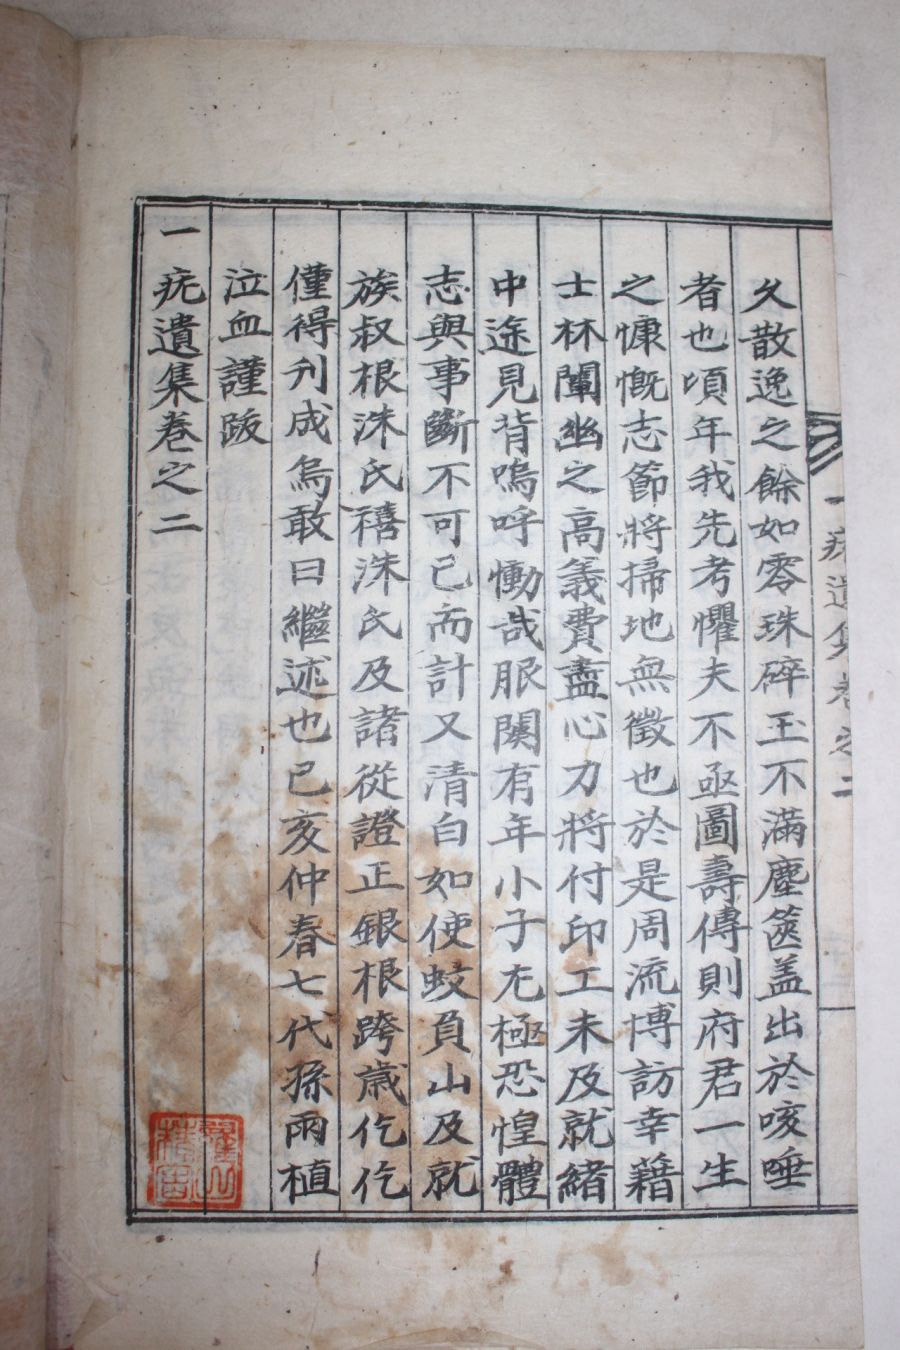 久散逸之餘如零珠碎玉不滿塵篋盖出於咳唾
者也頃年我先考懼夫不亟圖壽傳則府君一生
之慷慨志節將掃地無徵也於是周流博訪幸藉
士林闡幽之高義費盡心力將付印工未及就緖
中途見背嗚呼慟哉服闋有年小子尤極恐惶體
志與事斷不可已而計又清白如使蚊負山及就
族叔根洙氏禧洙氏及諸從證正銀根跨歲仡仡
僅得刋成烏敢曰繼述也己亥仲春七代孫雨植
泣血謹跋
一疣遺集卷之二
一疣遺集卷之二